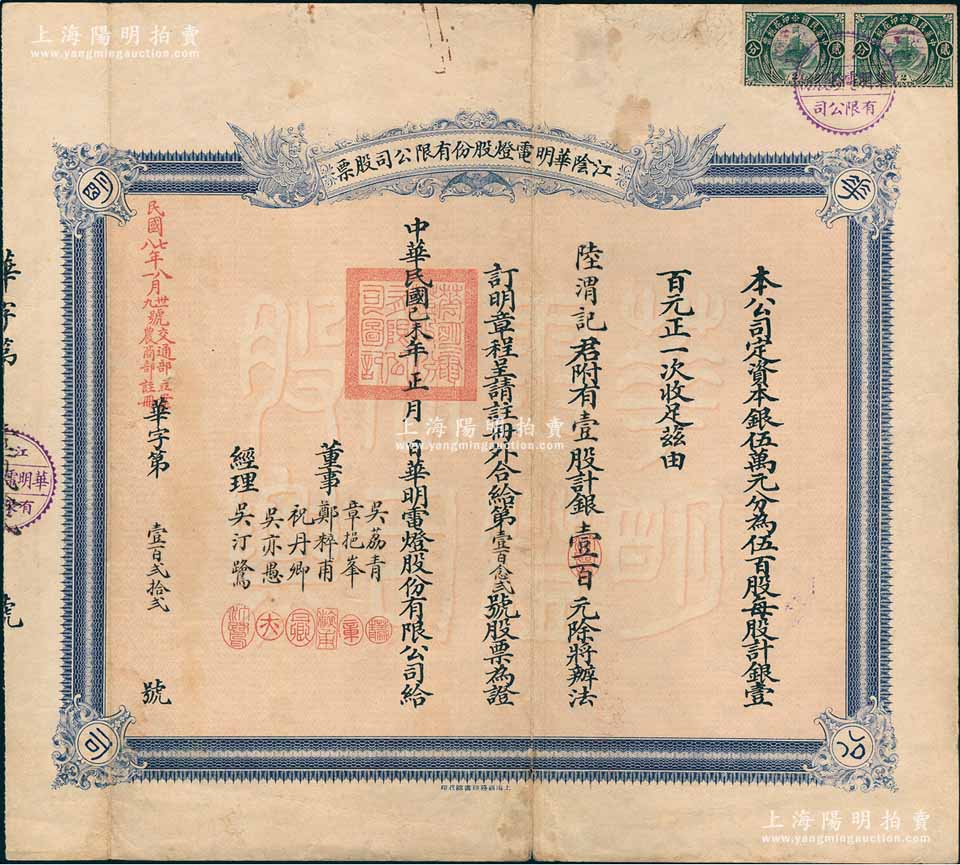 上海陽明拍賣
www.yangmingauction.com
上海陽明拍賣
www.yangmingauction.com
有限公司
江陰華明電燈股份有限公司股票
華
明
公
司
本公司定資本銀伍萬元分為伍百股每股計銀壹
百元正一次收足茲由
陸渭記君附有壹股計銀壹百元除將辦法
訂明章程呈請註冊外合給第壹百念弍號股票為證
中華民國己未年正月 日華明電燈股份有限公司給
董事 吳荔青
章挹峯
鄭粹甫
祝丹卿
吳亦愚
經理 吳汀鷺
華字第 壹百弍拾弍 號
民國七年八月卅號交通部
八年一月九號農商部註冊
上海陽明拍賣
www.yangmingauction.com
華字第
號
江
華明電
有限
上海陽明拍賣
www.yangmingauction.com